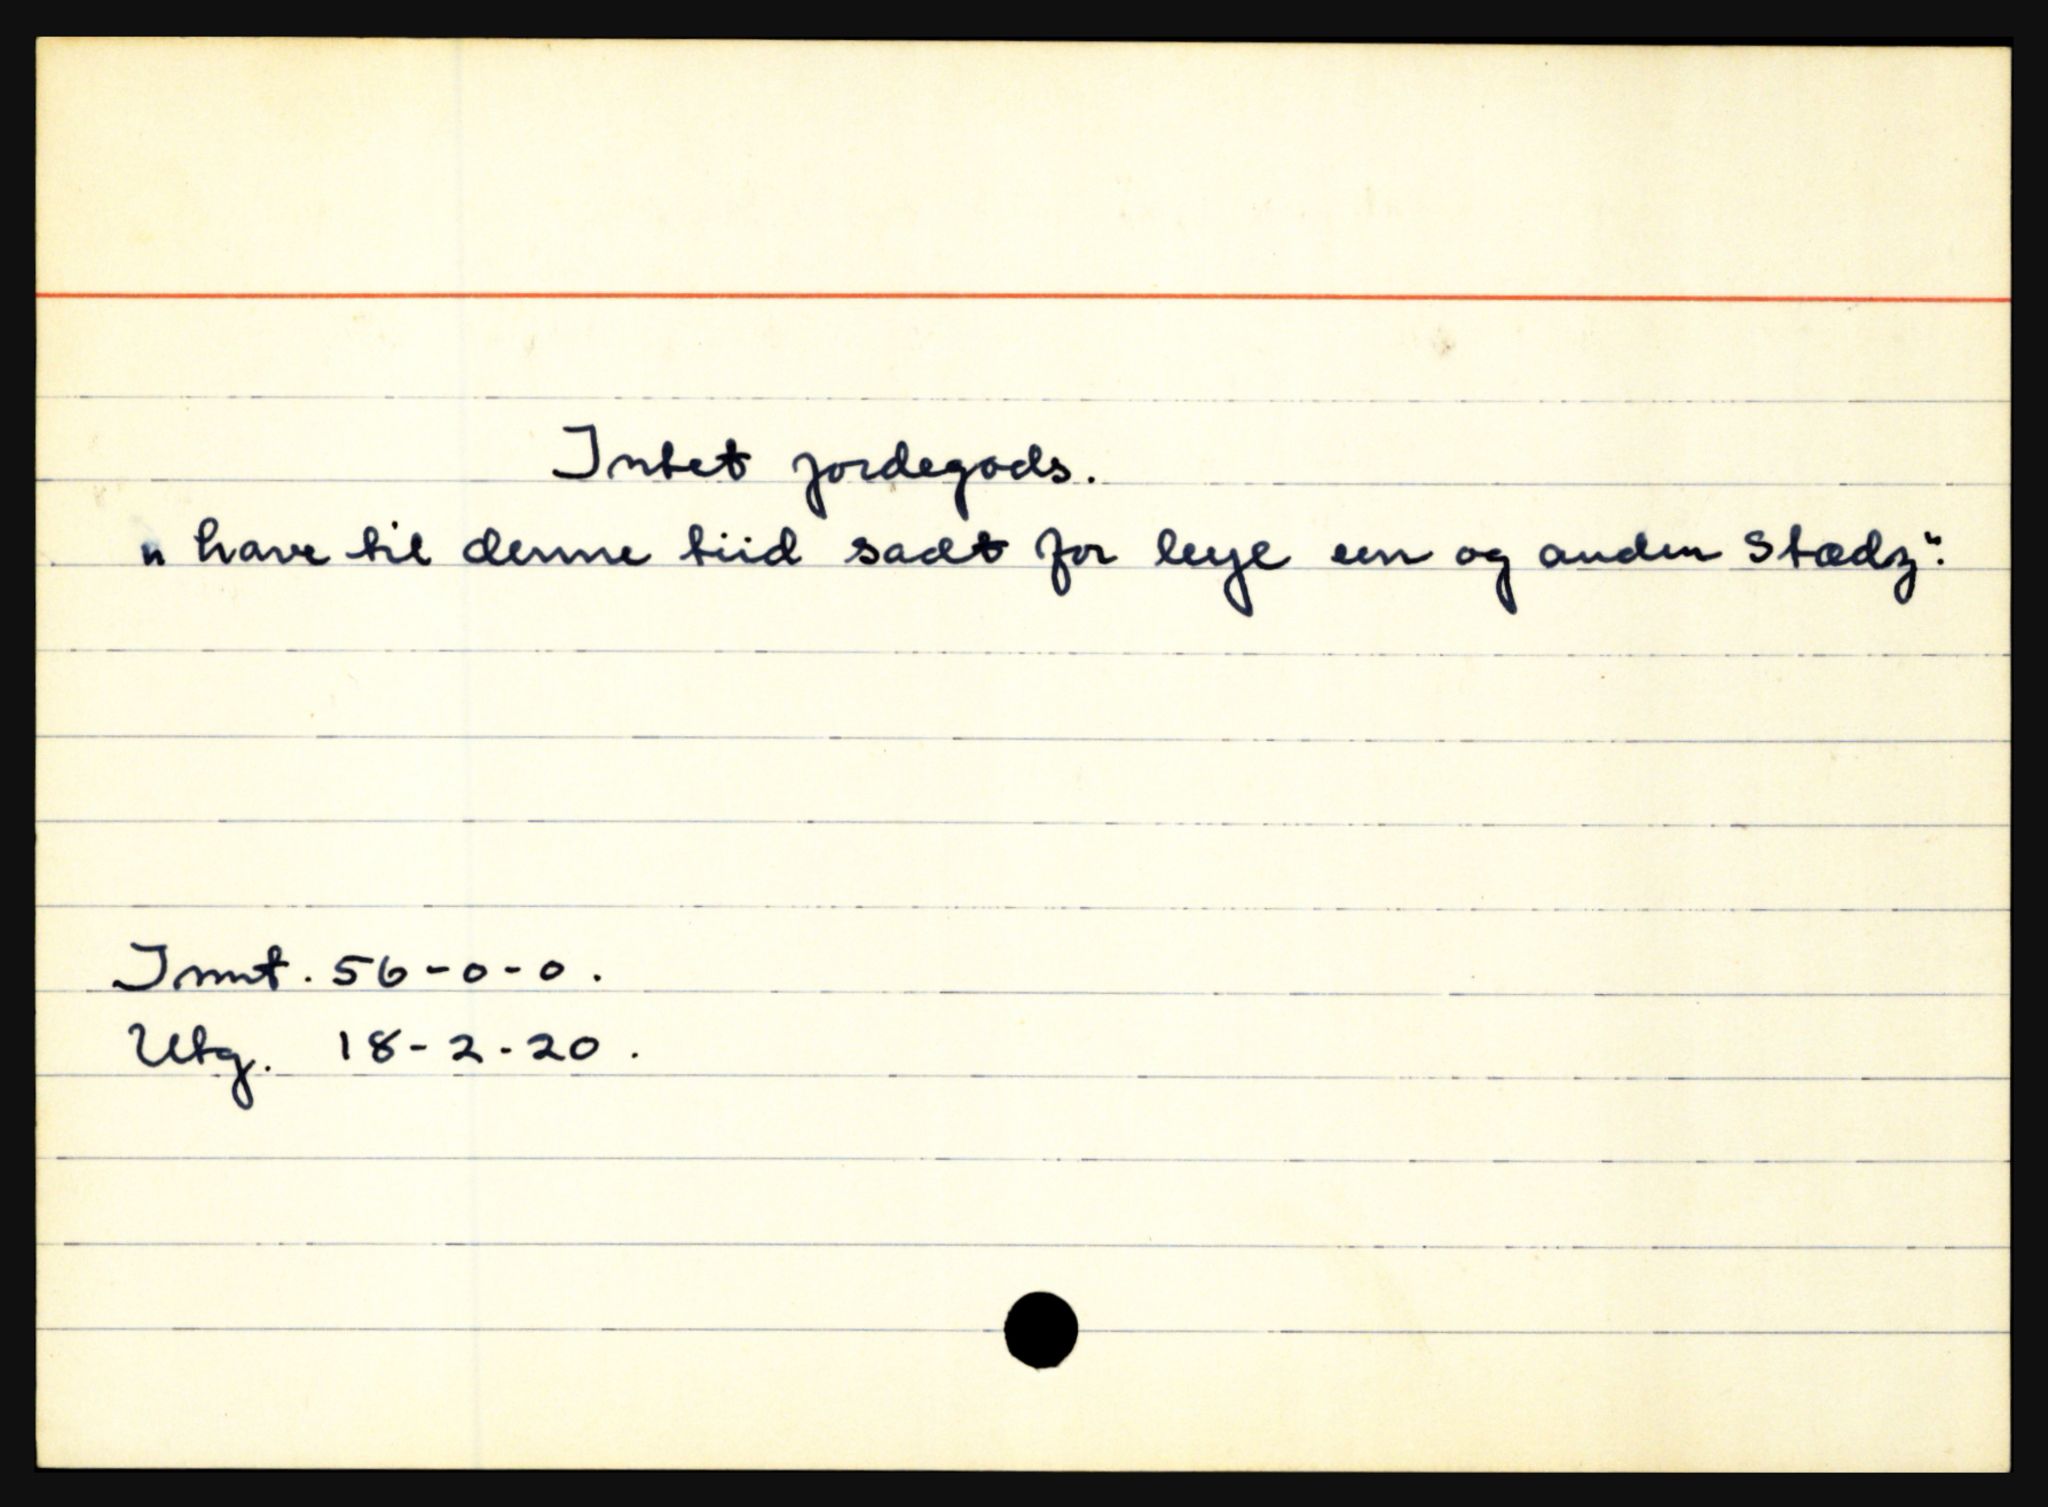 Intet jordegods.
„have til denne tiid sadt for leye een og anden Stædz“.
Innt. 56-0-0.
Utg. 18-2-20.